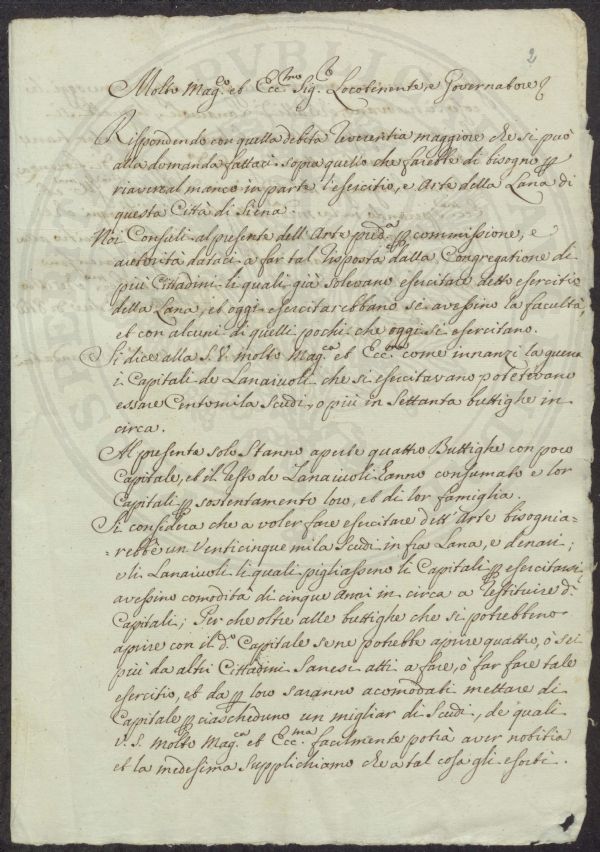 2
Molto Mag.co et Ecc.mo Sig.re Locotenente e Governatore
Rispondendo con quella debita Reverentia maggiore che si può
alla domanda fattaci sopra quello che sarebbe di bisogno p
riavere al manco in parte l'esercitio, e Arte della Lana di
questa Città di Siena.
Noi Consoli al presente dell'Arte pred.a p commissione, e
autorità dataci a far tal risposta dalla Congregatione di
più Cittadini li quali già solevano esercitare detto esercitio
della Lana, et oggi esercitarebbano se avessino la facultà,
et con alcuni di quelli pochi che oggi si esercitano.
Si dice alla S.V. molto Mag.ca et Ecc.ma come innanzi la guerra
i Capitali de Lanaiuoli che si esercitavano potetevano
essare Centomila Scudi, o più in Settanta buttighe in
circa.
Al presente solo Stanno aperte quattro Buttighe con poco
Capitale, et il resto de Lanaiuoli anno consumato e lor
Capitali p sostentamento loro, et di lor famiglia.
Si considera che a voler fare esercitare dett'Arte bisognia-
=rebbe un Venticinque mila Scudi in fra Lana, e denari;
e li Lanaiuoli li quali pigliasseno li Capitali p esercitarsi,
avessino comodità di cinque Anni in circa a restituire d.i
Capitali; Per che oltre alle buttighe che si potrebbino
aprire con il d.o Capitale se ne potrebbe aprire quattro, ò sei
più da altri Cittadini Sanesi atti a fare, ò far fare tale
esercitio, et da p loro saranno acomodati mettare di
Capitale p ciascheduno un migliar di Scudi, de quali
V.S. molto Mag.ca et Ecc.ma facilmente potrà aver notitia
et la medesima Supplichiamo che a tal cosa gli esorti.